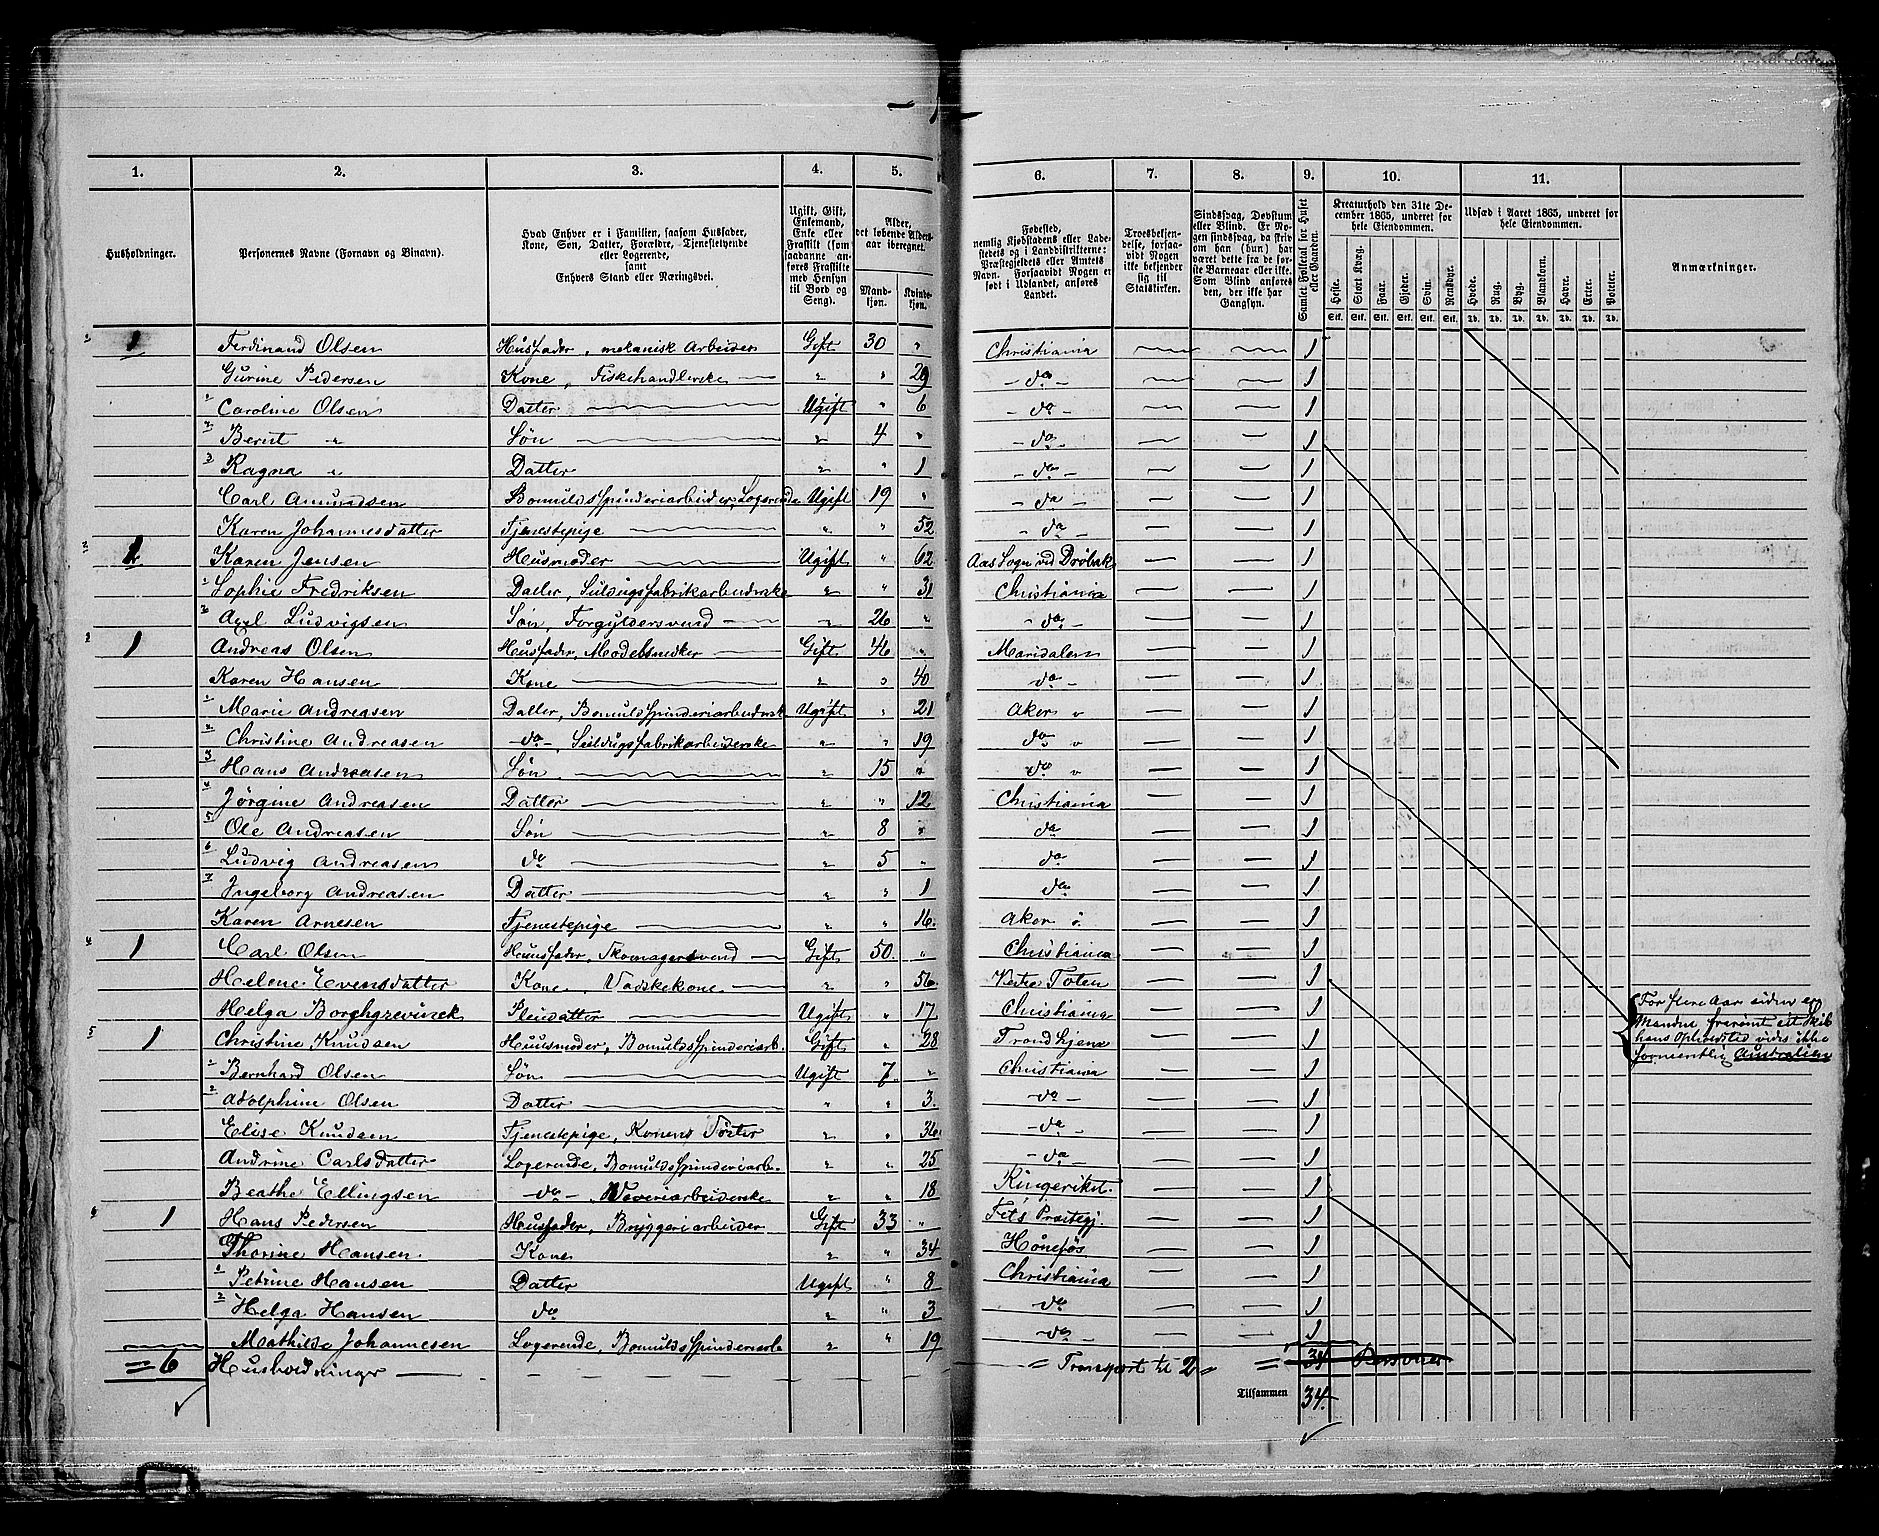 1. 2. 3. 4. 5. 6. 7. 8. 9. 10. 11.
Husholdninger.
Personernes Navne (Fornavn og Binavn).
Hvad Enhver er i Familien, saasom Husfader,
Kone, Søn, Datter, Forældre, Tjenestetyende
eller Logerende,
samt
Enhvers Stand eller Næringsvei.
Ugift, Gift,
Enkemand,
Enke eller
Fraskilt (som
saadanne an-
føres Fraskilte
med Hensyn
til Bord og
Seng).
Alder,
det løbende Alders-
aar iberegnet.
Mand-
kjøn.
Kvinde-
kjøn.
Fødested,
nemlig Kjøbstadens eller Lade-
stedets og i Landdistrikterne:
Præstegjeldets eller Amtets
Navn. Forsaavidt Nogen er
født i Udlandet, anføres
Landet.
Troesbekjen-
delse, forsaa-
vidt Nogen
ikke bekjender
sig til
Statskirken.
Sindssvag, Døvstum
eller Blind. Er No-
gen sindssvag, da skriv
om han (hun) har
været dette fra de før-
ste Barneaar eller ikke.
Som Blind anføres
den, der ikke har
Gangsyn.
Samlet Folketal for Huset
eller Gaarden.
Kreaturhold den 31te De-
cember 1865, underet for
hele Eiendommen.
Heste. Stort Kvæg. Faar. Gjeder. Svin. Rensdyr.
Stk. Stk. Stk. Stk. Stk. Stk.
Udsæd i Aaret 1865, underet for
hele Eiendommen.
Hvede. Rug. Byg. Blandkorn. Havre. Erter. Poteter.
Td. Td. Td. Td. Td. Td. Td.
Anmærkninger.
1 Ferdinand Olsen Husfader, mekanisk Arbeider Gift 30 " Christiania 1
Gurine Pedersen Kone, Fiskehandlerske " " 29 - do - 1
1 Caroline Olsen Datter Ugift " 6 - do - 1
2 Bernt " Søn " 4 " - do - 1
3 Ragna " Datter " " 1 - do - 1
Carl Amundsen Bomuldsspinderiarbeider, Logerende Ugift 19 " - do - 1
Karen Johannesdatter Tjenestepige " " 52 - do - 1
2 1 Karen Jensen Husmoder Ugift " 62 Aas Sogn ved Drøbak 1
1 Sophie Fredriksen Datter, Seildugsfabrikarbeiderske " " 31 Christiania 1
2 Axel Ludvigsen Søn, Forgyldersvend " 26 " - do - 1
3 1 Andreas Olsen Husfader, Modelsnedker Gift 46 " Maridalen 1
Karen Hansen Kone " " 40 do - 1
1 Marie Andreasen Datter, Bomuldsspinderiarbeidersk. Ugift " 21 Aker v 1
2 Christine Andreasen - do -, Seildugsfabrikarbeiderske " " 19 do v 1
3 Hans Andreasen Søn " 15 " do v 1
4 Jørgine Andreasen Datter " " 12 Christiania 1
5 Ole Andreasen Søn " 8 " do 1
6 Ludvig Andreasen do " 5 " do 1
7 Ingeborg Andreasen Datter " " 1 do 1
Karen Arnesen Tjenestepige " " 16. Aker ø. 1
4 1 Carl Olsen Huusfader, Skomagersvend Gift 50. " Christiania 1
Helene Evensdatter Kone, Vadskekone " " 56. Vestre Toten 1
Helga Borchgrevinck Pleiedatter Ugift " 17 Christiania 1
5 1 Christine Knudsen Huusmoder, Bomuldsspinderiarb. Gift " 28 Trondhjem 1
1 Bernhard Olsen Søn Ugift 7. " Christiania 1
2 Adolphine Olsen Datter " " 3. - do - 1
Elise Knudsen Tjenestepige, Konens Søster " " 36. - do - 1
Andrine Carlsdatter Logerende, Bomuldsspinderiarbe. " " 25 - do - 1
Beathe Ellingsen - do -, Væveriarbeiderske " " 18 Ringeriket. 1
6 1 Hans Pedersen Husfader, Bryggeriarbeider Gift 33 " Fets Præstegj. 1
Thorine Hansen Kone " " 34 Hønefos 1
1 Petrine Hansen Datter Ugift " 8 Christiania 1
2 Helga Hansen do " " 3 do 1
Mathilde Johannesen Logerende, Bomuldsspinderiarb. " " 19 do - 1
For flere Aar siden er
Manden frarømt et Skib
hans Opholdssted vides ikke
formentlig Australien
= 6 Husholdninger = Transport til 2 = 34 Personer
Tilsammen 34.